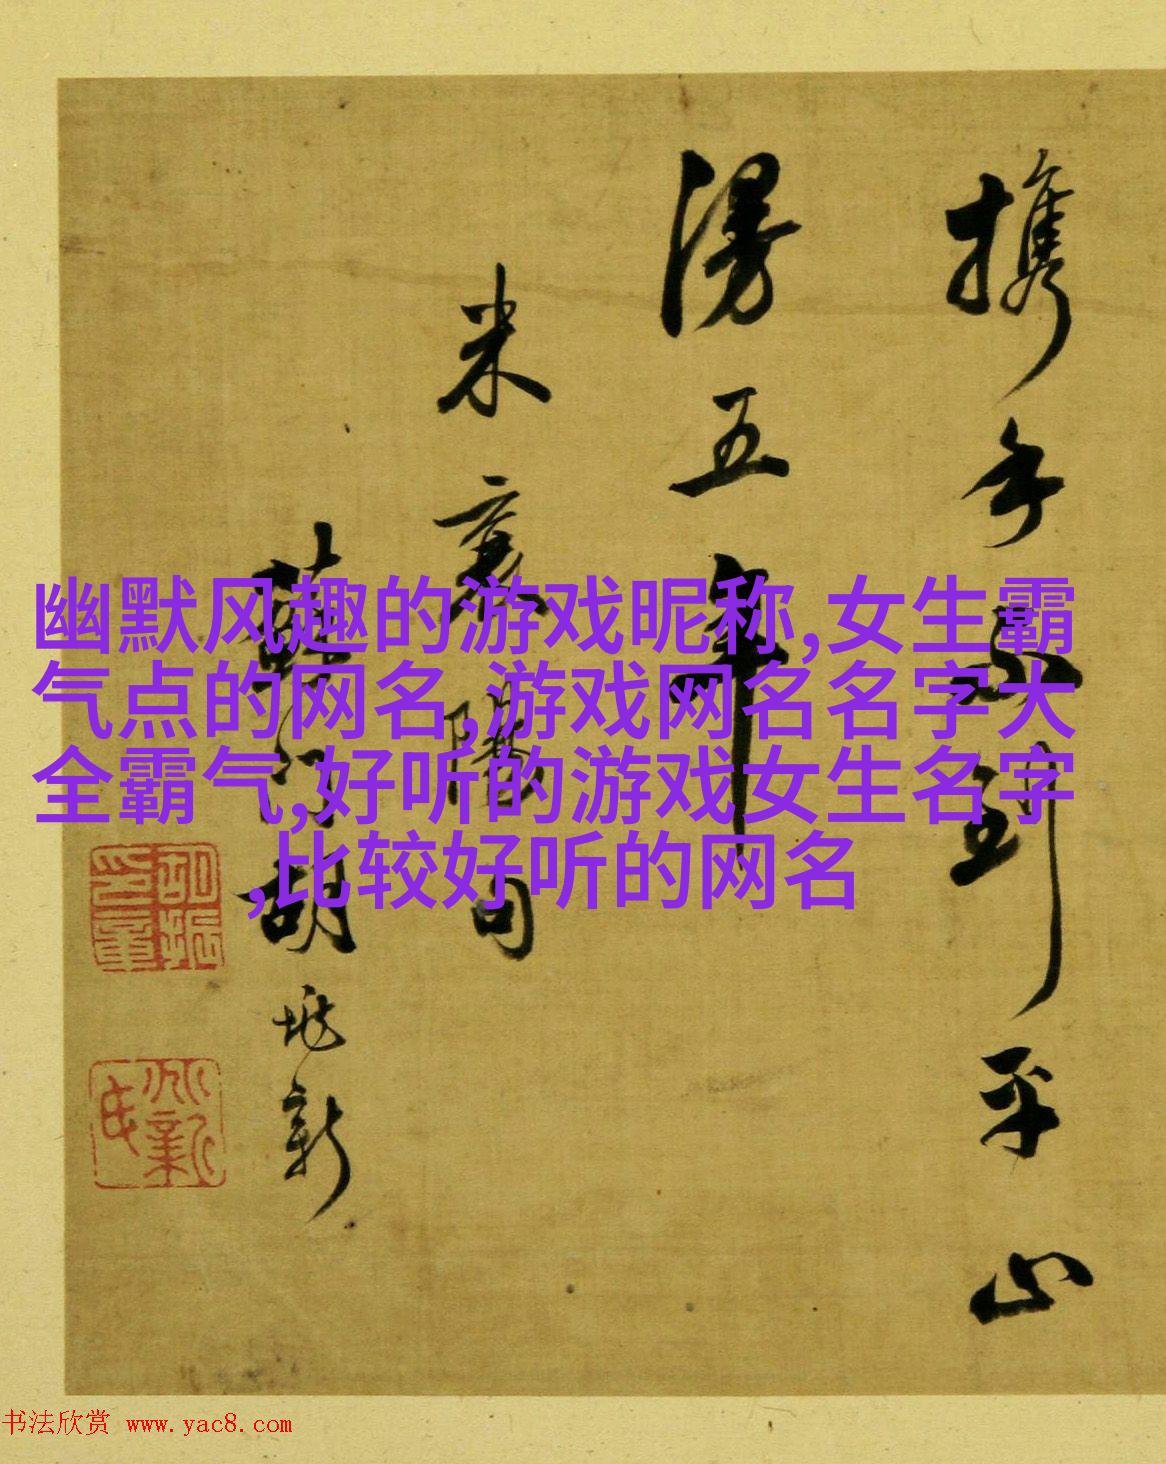 攜手到平山
漫五年
米襄陽句
胡新
幽默风趣的游戏昵称,女生霸
气点的网名,游戏网名名字大
全霸气,好听的游戏女生名字
,比较好听的网名
书法欣赏 www.yac8.com